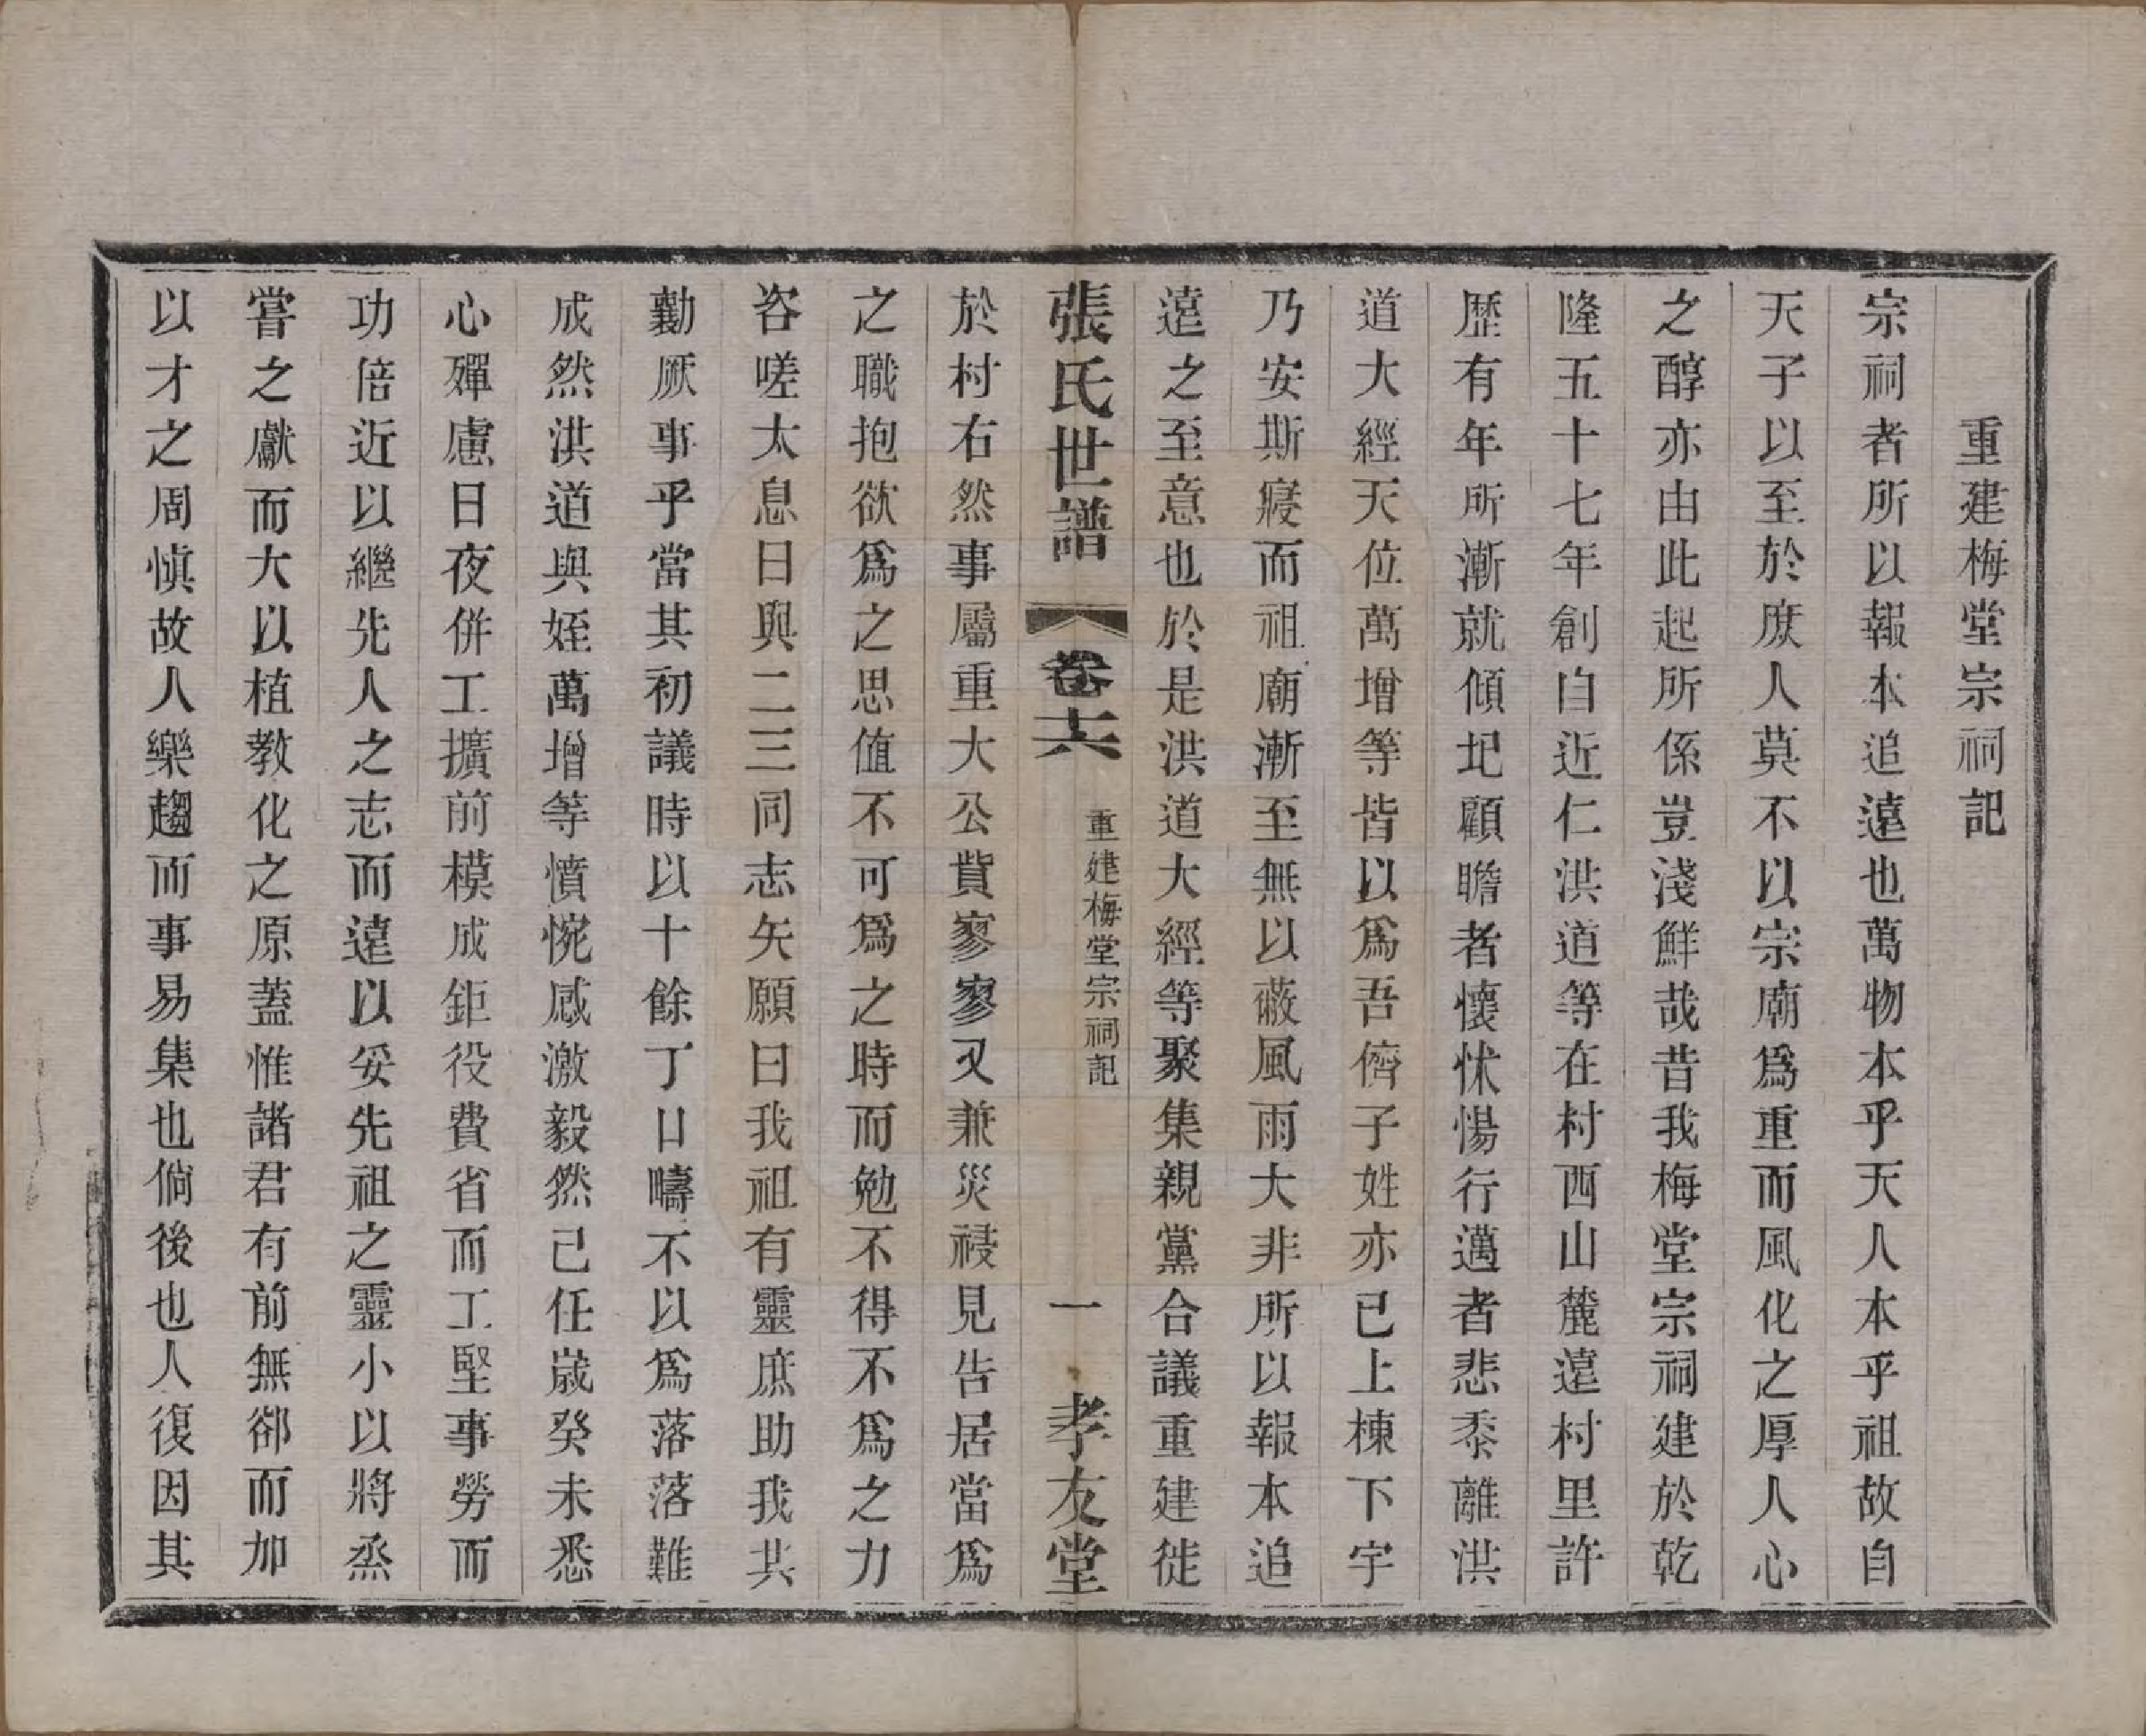 重建梅堂宗祠記
宗祠者所以報本追遠也萬物本乎天人本乎祖故自
天子以至於庶人莫不以宗廟爲重而風化之厚人心
之醇亦由此起所係豈淺鮮哉昔我梅堂宗祠建於乾
隆五十七年創自近仁洪道等在村西山麓遠村里許
歷有年所漸就傾圮顧瞻者懷怵惕行邁者悲黍離洪
道大經天位萬增等皆以爲吾儕子姓亦已上棟下宇
乃安斯寢而祖廟漸至無以蔽風雨大非所以報本追
遠之至意也於是洪道大經等聚集親黨合議重建徙
張氏世譜
卷十六
重建梅堂宗祠記
一
孝友堂
於村右然事屬重大公貲寥寥又兼災祲見告居當爲
之職抱欲爲之思值不可爲之時而勉不得不爲之力
咨嗟太息日與二三同志矢願曰我祖有靈庶助我共
勷厥事乎當其初議時以十餘丁口疇不以爲落落難
成然洪道與姪萬增等憤惋感激毅然己任歲癸未悉
心殫慮日夜併工擴前模成鉅役費省而工堅事勞而
功倍近以繼先人之志而遠以妥先祖之靈小以將烝
嘗之獻而大以植教化之原蓋惟諸君有前無卻而加
以才之周愼故人樂趨而事易集也倘後也人復因其